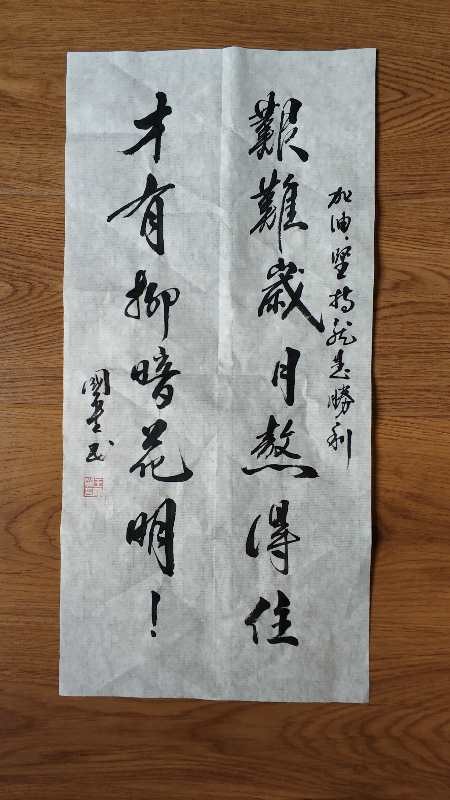 加油、堅持就是勝利
艱難歲月熬得住
才有柳暗花明！
國